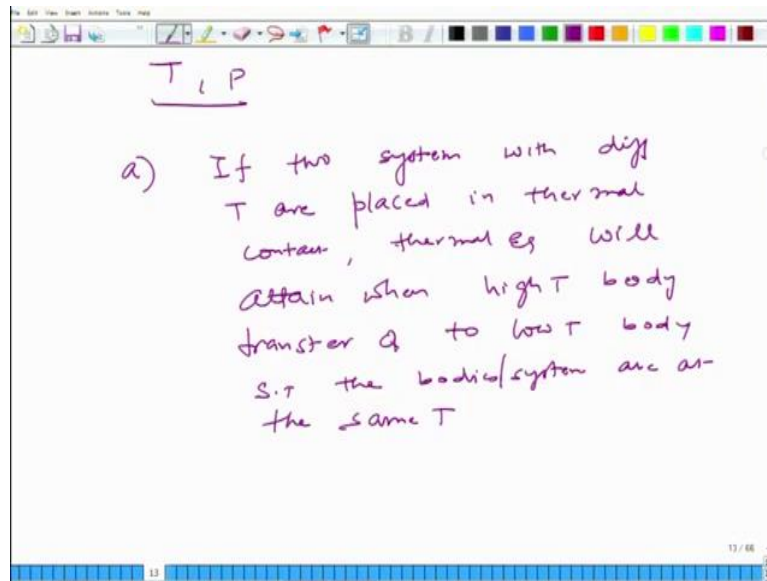 File Edit View Insert Actions Tools Help
T, P
a) If two system with diff
T are placed in thermal
contact, thermal Eq will
attain when high T body
transfer Q to low T body
S.T the bodies/system are at
the same T
13 / 66
13